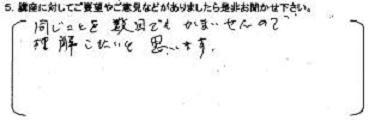 5. 講座に対してご要望やご意見などがありましたら是非お聞かせ下さい。
同じことを数回でもかまいせんので
理解したいと思います。